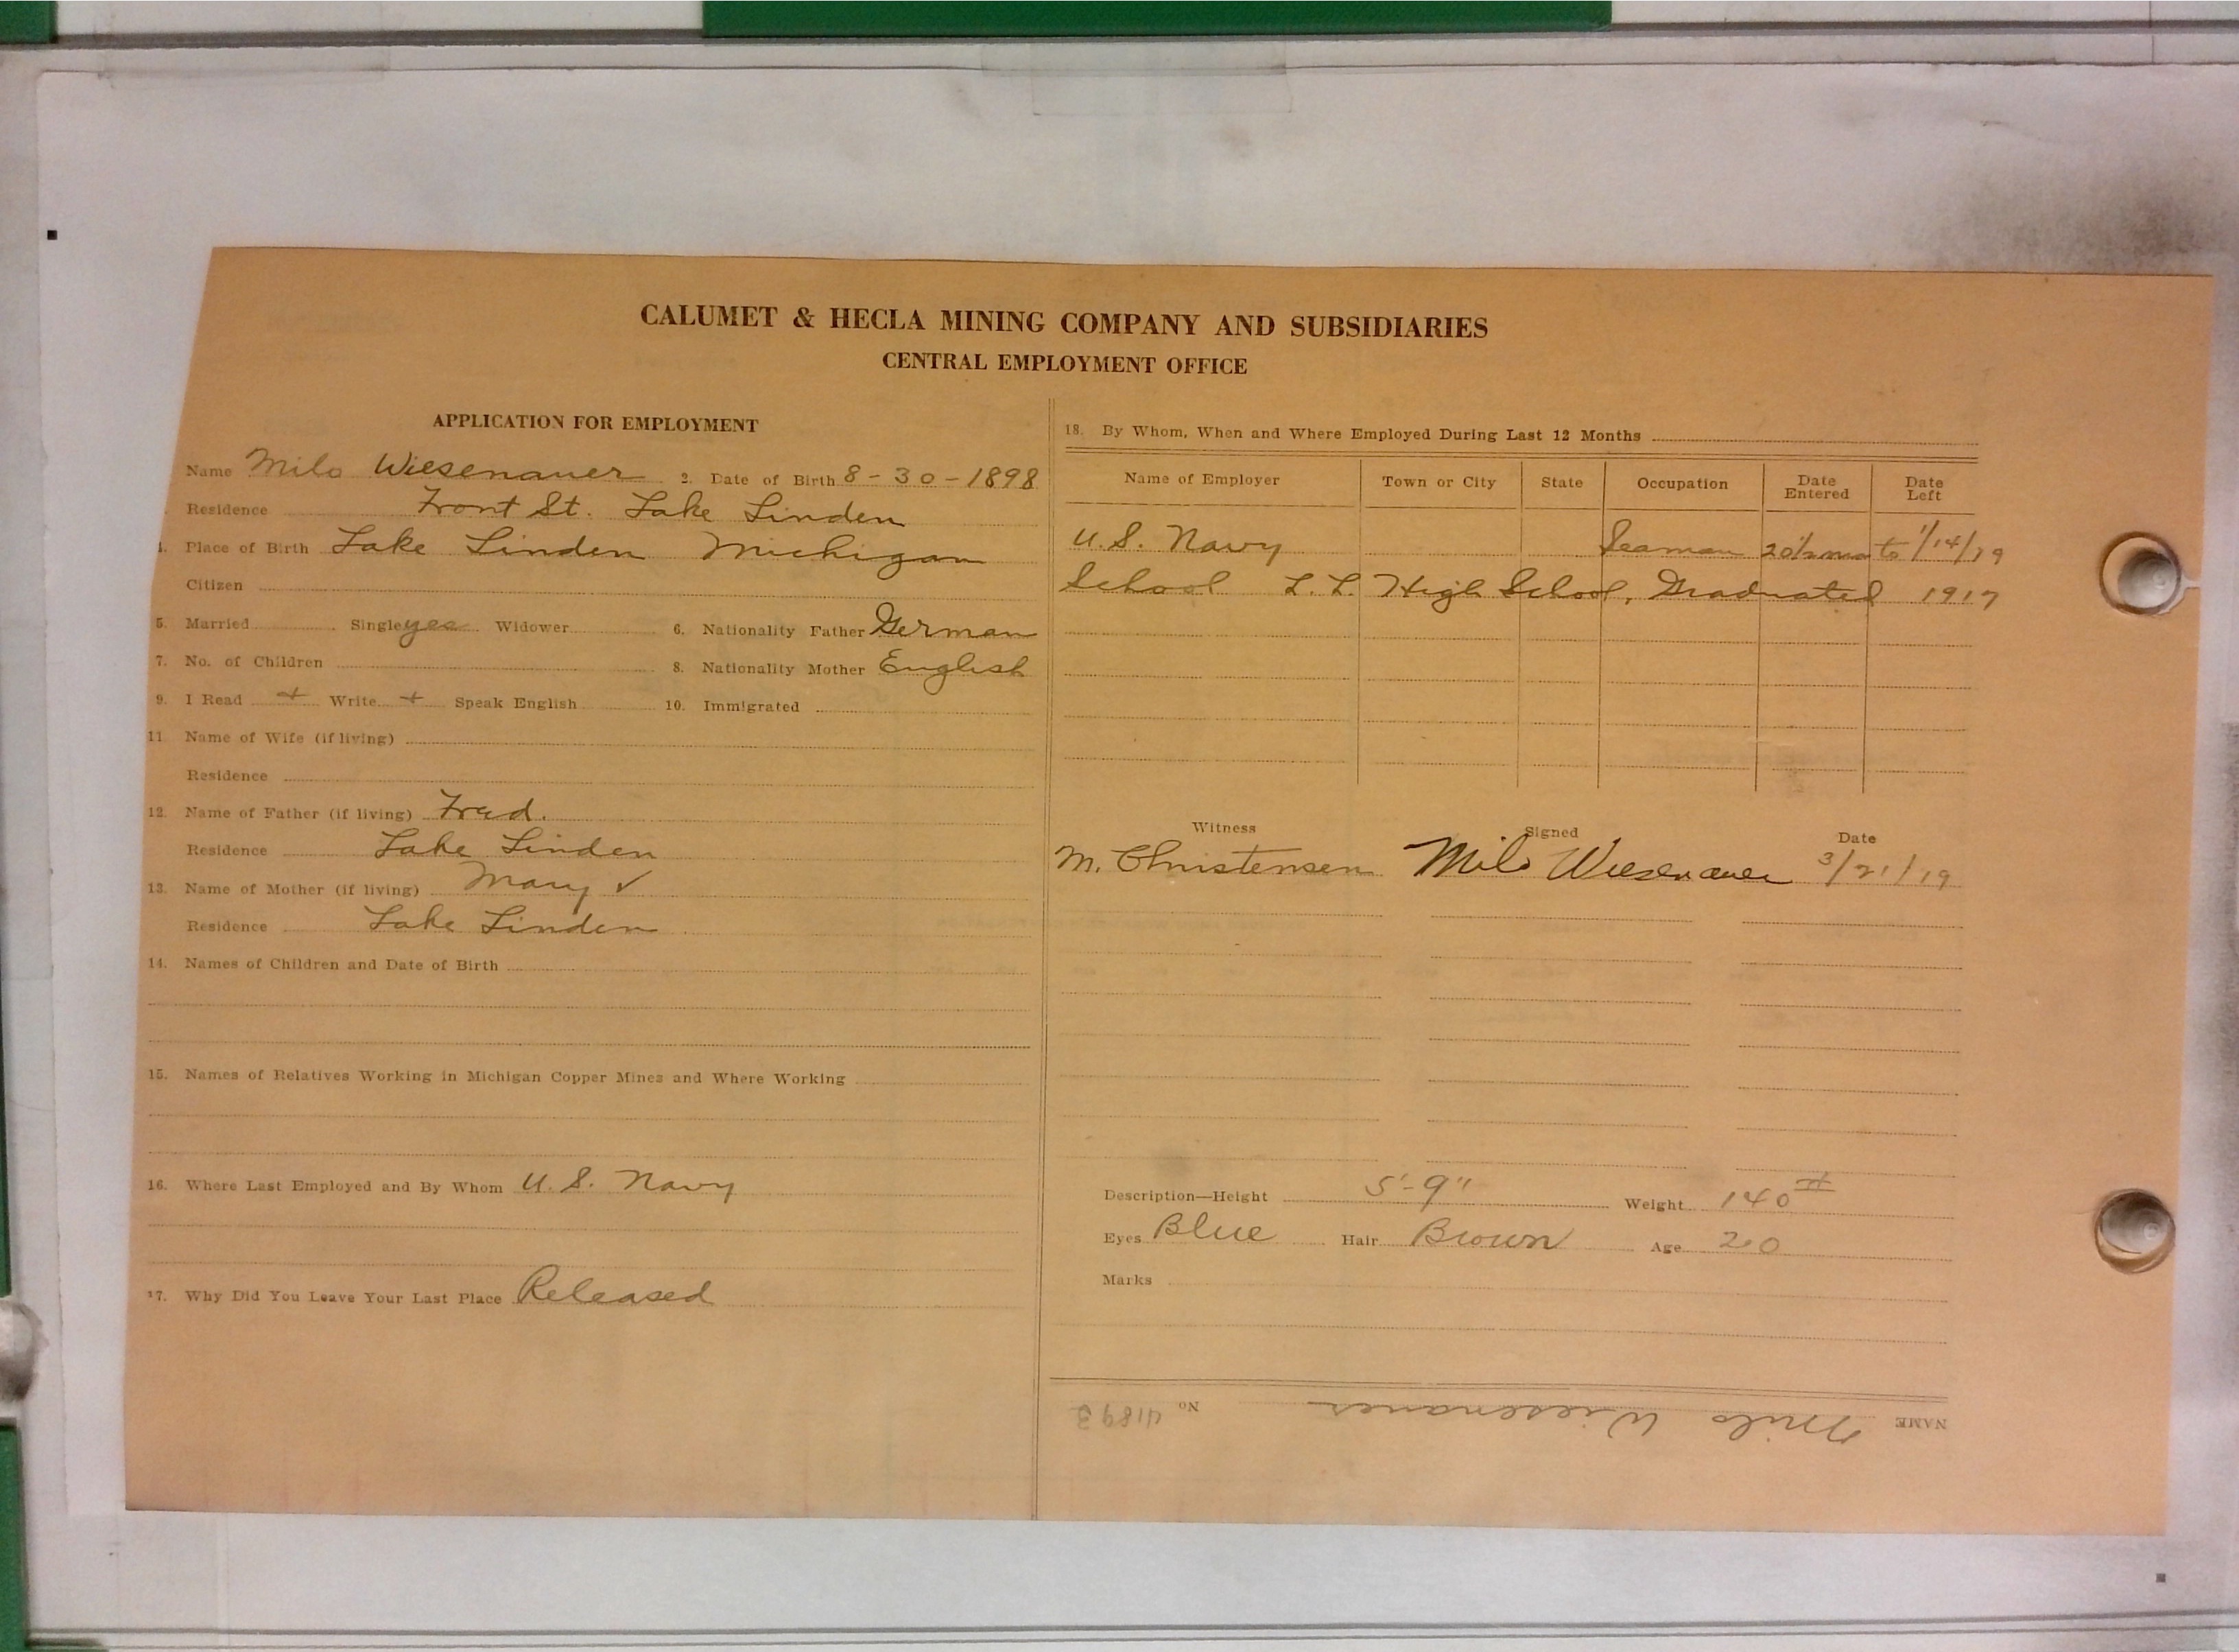 CALUMET & HECLA MINING COMPANY AND SUBSIDIARIES
CENTRAL EMPLOYMENT OFFICE
APPLICATION FOR EMPLOYMENT
Name Milo Wiesenauer 2. Date of Birth 8-30-1898
Residence Front St. Lake Linden
4. Place of Birth Lake Linden Michigan
Citizen
5. Married Single yes Widower 6. Nationality Father German
7. No. of Children 8. Nationality Mother English
9. I Read + Write + Speak English 10. Immigrated
11. Name of Wife (if living)
Residence
12. Name of Father (if living) Fred.
Residence Lake Linden
13. Name of Mother (if living) Mary ✓
Residence Lake Linden
14. Names of Children and Date of Birth
15. Names of Relatives Working in Michigan Copper Mines and Where Working
16. Where Last Employed and By Whom U.S. Navy
17. Why Did You Leave Your Last Place Released
18. By Whom, When and Where Employed During Last 12 Months
Name of Employer Town or City State Occupation Date Entered Date Left
U.S. Navy Seaman 20½ mos to 1/14/19
School L.L. High School, Graduated 1917
Witness Signed Date
M. Christensen Milo Wiesenauer 3/21/19
Description—Height 5'-9" Weight 140#
Eyes Blue Hair Brown Age 20
Marks
NAME Milo Wiesenauer No 41893